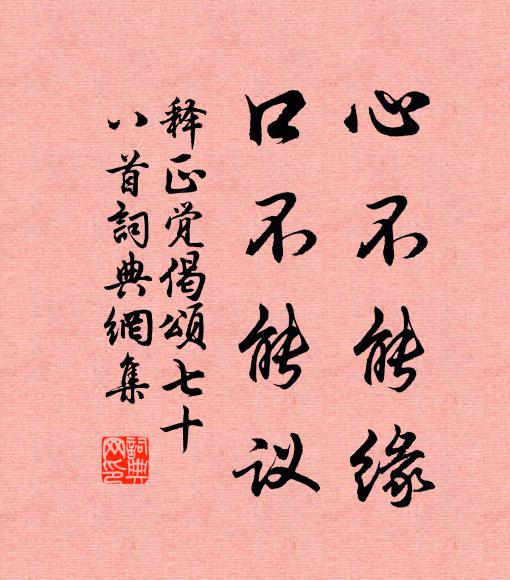 心不能缘
口不能议
释正觉偈颂七十
八首詞典網集
詞典
网印